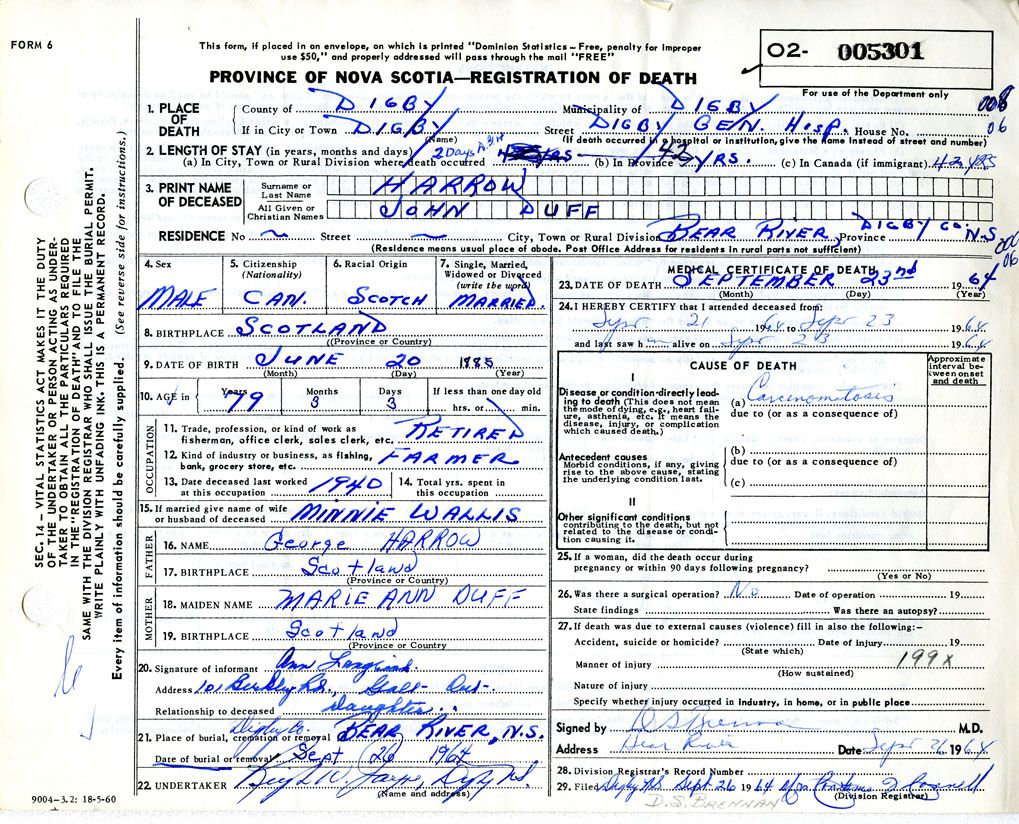 FORM 6
This form, if placed in an envelope, on which is printed "Dominion Statistics – Free, penalty for improper
use $50," and properly addressed will pass through the mail "FREE"
PROVINCE OF NOVA SCOTIA—REGISTRATION OF DEATH
O2- 005301
For use of the Department only
008
06
1. PLACE OF DEATH
County of DIGBY Municipality of DIGBY
If in City or Town DIGBY Street DIGBY GEN. HOSP. House No.
(Name) (If death occurred in a hospital or institution, give the name instead of street and number)
2. LENGTH OF STAY (in years, months and days)
(a) In City, Town or Rural Division where death occurred 2 Days YRS (b) In Province 42 YRS. (c) In Canada (if immigrant) 42 YRS
3. PRINT NAME OF DECEASED
Surname or Last Name HARROW
All Given or Christian Names JOHN DUFF
RESIDENCE No ~ Street ~ City, Town or Rural Division BEAR RIVER, DIGBY CO. Province N.S
(Residence means usual place of abode. Post Office Address for residents in rural parts not sufficient)
006
06
4. Sex MALE
5. Citizenship (Nationality) CAN.
6. Racial Origin SCOTCH
7. Single, Married, Widowed or Divorced (write the word) MARRIED.
8. BIRTHPLACE SCOTLAND
(Province or Country)
9. DATE OF BIRTH JUNE 20 1885
(Month) (Day) (Year)
10. AGE in Years 79 Months 3 Days 3 If less than one day old hrs. or min.
OCCUPATION
11. Trade, profession, or kind of work as fisherman, office clerk, sales clerk, etc. RETIRED
12. Kind of industry or business, as fishing, bank, grocery store, etc. FARMER
13. Date deceased last worked at this occupation 1940
14. Total yrs. spent in this occupation
15. If married give name of wife or husband of deceased MINNIE WALLIS
FATHER
16. NAME George HARROW
17. BIRTHPLACE Scotland
(Province or Country)
MOTHER
18. MAIDEN NAME MARIE ANN DUFF
19. BIRTHPLACE Scotland
(Province or Country
20. Signature of informant Ann
Address 101 Rd. Galt - Ont.
Relationship to deceased Daughter
21. Place of burial, cremation or removal Digby Co. BEAR RIVER, N.S.
Date of burial or removal Sept 26 1964
22. UNDERTAKER
(Name and address)
9004–3.2: 18-5-60
MEDICAL CERTIFICATE OF DEATH
23. DATE OF DEATH SEPTEMBER 23nd 1964
(Month) (Day) (Year)
24. I HEREBY CERTIFY that I attended deceased from:
Sept 21 1964 to Sept 23 1964
and last saw him alive on Sept 23 1964
CAUSE OF DEATH
Approximate interval between onset and death
I
Disease or condition directly leading to death (This does not mean the mode of dying, e.g., heart failure, asthenia, etc. It means the disease, injury, or complication which caused death.)
(a) Carcinomatosis
due to (or as a consequence of)
Antecedent causes
Morbid conditions, if any, giving rise to the above cause, stating the underlying condition last.
(b)
due to (or as a consequence of)
(c)
II
Other significant conditions
contributing to the death, but not related to the disease or condition causing it.
25. If a woman, did the death occur during
pregnancy or within 90 days following pregnancy?
(Yes or No)
26. Was there a surgical operation? No Date of operation 19
State findings Was there an autopsy?
27. If death was due to external causes (violence) fill in also the following:–
Accident, suicide or homicide? Date of injury 19
(State which)
199x
Manner of injury
(How sustained)
Nature of injury
Specify whether injury occurred in industry, in home, or in public place
Signed by D S Brennan M.D.
Address Bear River Date Sept 26 1964
28. Division Registrar's Record Number
29. Filed Digby NS Sept. 26 1964
(Division Registrar)
D.S. BRENNAN
SEC. 14 – VITAL STATISTICS ACT MAKES IT THE DUTY
OF THE UNDERTAKER OR PERSON ACTING AS UNDER-
TAKER TO OBTAIN ALL THE PARTICULARS REQUIRED
IN THE "REGISTRATION OF DEATH" AND TO FILE THE
SAME WITH THE DIVISION REGISTRAR WHO SHALL ISSUE THE BURIAL PERMIT.
WRITE PLAINLY WITH UNFADING INK. THIS IS A PERMANENT RECORD.
Every item of information should be carefully supplied. (See reverse side for instructions.)